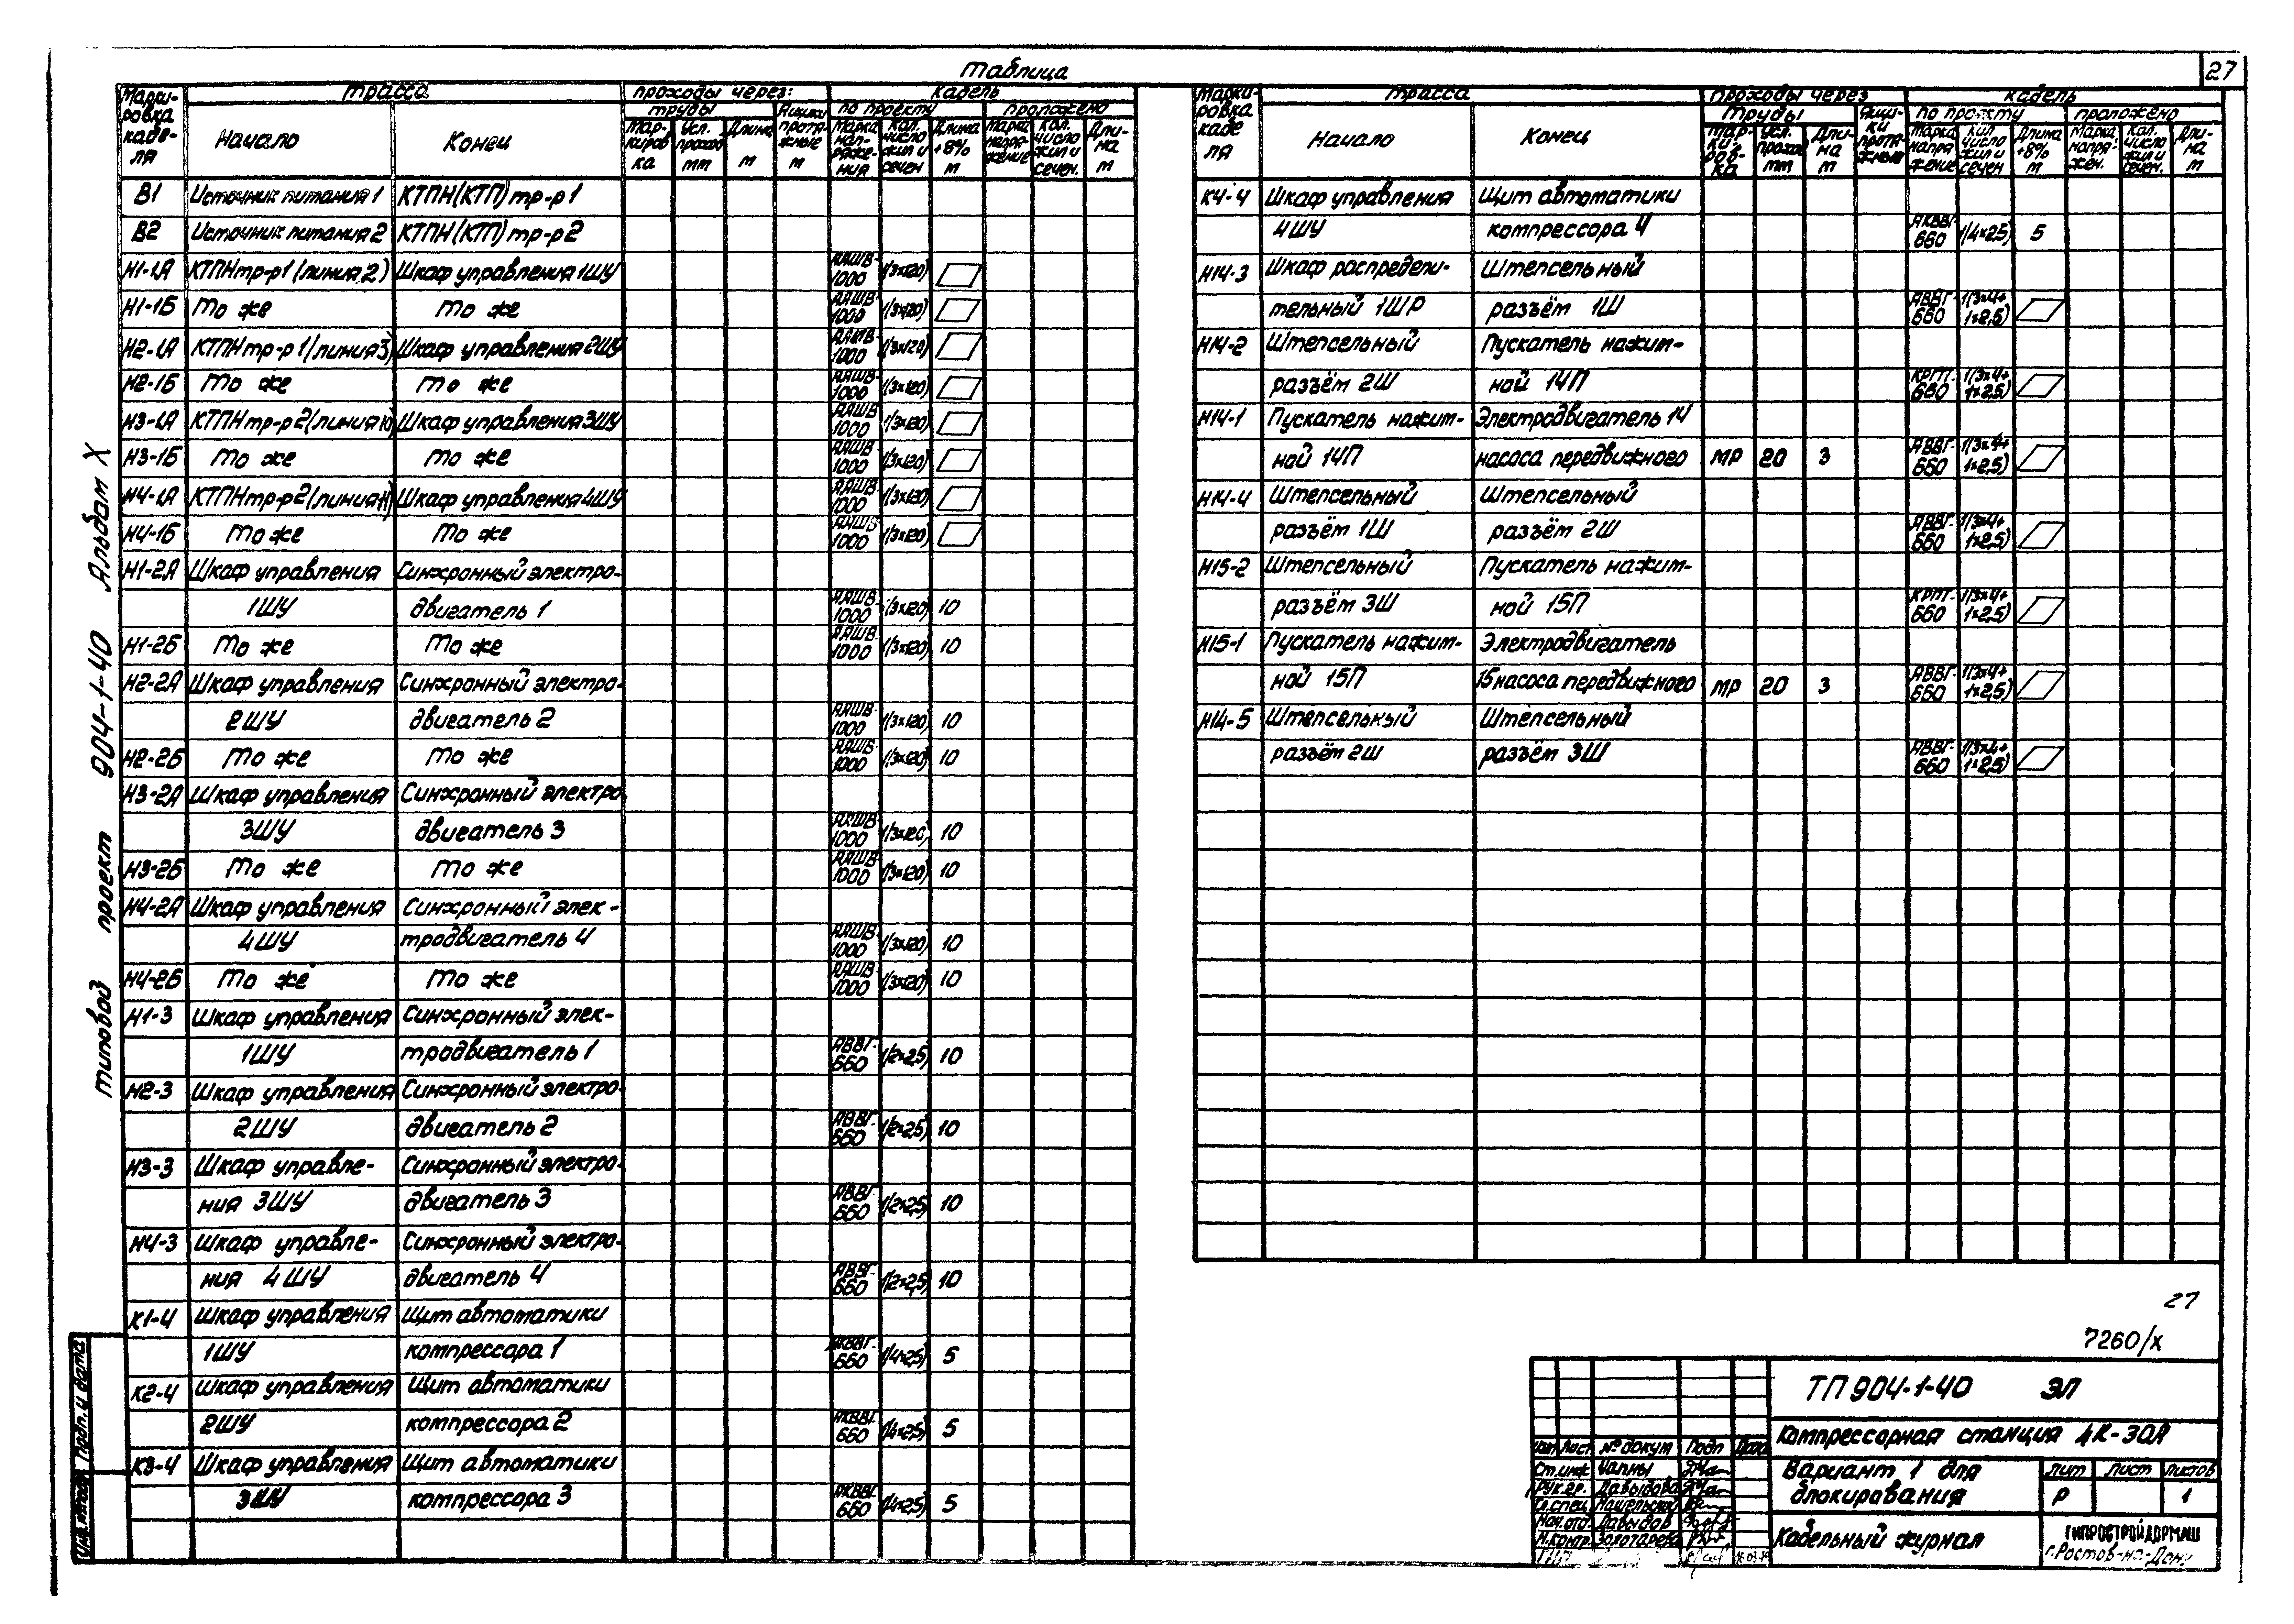 27
Таблица
Марки-ровка кабе-ля | Трасса | проходы через: | кабель
трубы | Ящики протя-жные м | по проекту | проложено
Начало | Конец | Мар-киров ка | Усл. проход мм | Длина м | Марка нап-ряже-ния | Кол. число жил и сечен | Длина +8% м | Марка напря-жение | Кол. число жил и сечен. | Дли-на м
В1 Источник питания 1 КТПН(КТП) тр-р 1
В2 Источник питания 2 КТПН(КТП) тр-р 2
Н1-1А КТПН тр-р 1 (линия 2) Шкаф управления 1ШУ ААШВ-1000 1(3х120)
Н1-1Б То же То же ААШВ-1000 1(3х120)
Н2-1А КТПН тр-р 1 (линия 3) Шкаф управления 2ШУ ААШВ-1000 1(3х120)
Н2-1Б То же То же ААШВ-1000 1(3х120)
Н3-1А КТПН тр-р 2 (линия 10) Шкаф управления 3ШУ ААШВ-1000 1(3х120)
Н3-1Б То же То же ААШВ-1000 1(3х120)
Н4-1А КТПН тр-р 2 (линия 11) Шкаф управления 4ШУ ААШВ-1000 1(3х120)
Н4-1Б То же То же ААШВ-1000 1(3х120)
Н1-2А Шкаф управления Синхронный электро-
1ШУ двигатель 1 ААШВ-1000 1(3х120) 10
Н1-2Б То же То же ААШВ-1000 1(3х120) 10
Н2-2А Шкаф управления Синхронный электро-
2ШУ двигатель 2 ААШВ-1000 1(3х120) 10
Н2-2Б То же То же ААШВ-1000 1(3х120) 10
Н3-2А Шкаф управления Синхронный электро-
3ШУ двигатель 3 ААШВ-1000 1(3х120) 10
Н3-2Б То же То же ААШВ-1000 1(3х120) 10
Н4-2А Шкаф управления Синхронный элек-
4ШУ тродвигатель 4 ААШВ-1000 1(3х120) 10
Н4-2Б То же То же ААШВ-1000 1(3х120) 10
Н1-3 Шкаф управления Синхронный элек-
1ШУ тродвигатель 1 АВВГ-660 1(2х2,5) 10
Н2-3 Шкаф управления Синхронный электро-
2ШУ двигатель 2 АВВГ-660 1(2х2,5) 10
Н3-3 Шкаф управле- Синхронный электро-
ния 3ШУ двигатель 3 АВВГ-660 1(2х2,5) 10
Н4-3 Шкаф управле- Синхронный электро-
ния 4ШУ двигатель 4 АВВГ-660 1(2х2,5) 10
К1-4 Шкаф управления Щит автоматики
1ШУ компрессора 1 АКВВГ-660 1(4х2,5) 5
К2-4 Шкаф управления Щит автоматики
2ШУ компрессора 2 АКВВГ-660 1(4х2,5) 5
К3-4 Шкаф управления Щит автоматики
3ШУ компрессора 3 АКВВГ-660 1(4х2,5) 5
Марки-ровка кабе ля | Трасса | проходы через | кабель
Трубы | Ящи-ки протя-жные | по проекту | проложено
Начало | Конец | Мар-ки-ров-ка | Усл. проход мм | Дли-на м | Марка напря жение | Кол число жил и сечен | Длина +8% м | Марка напря-жен. | Кол. число жил и сечен. | Дли-на м
К4-4 Шкаф управления Щит автоматики
4ШУ компрессора 4 АКВВГ-660 1(4х2,5) 5
Н14-3 Шкаф распредели- Штепсельный
тельный 1ШР разъём 1Ш АВВГ-660 1(3х4+1х2,5)
Н14-2 Штепсельный Пускатель нажим-
разъём 2Ш ной 14П КРПТ-660 1(3х4+1х2,5)
Н14-1 Пускатель нажим- Электродвигатель 14
ной 14П насоса передвижного МР 20 3 АВВГ-660 1(3х4+1х2,5)
Н14-4 Штепсельный Штепсельный
разъём 1Ш разъём 2Ш АВВГ-660 1(3х4+1х2,5)
Н15-2 Штепсельный Пускатель нажим-
разъём 3Ш ной 15П КРПТ-660 1(3х4+1х2,5)
Н15-1 Пускатель нажим- Электродвигатель
ной 15П 15 насоса передвижного МР 20 3 АВВГ-660 1(3х4+1х2,5)
Н14-5 Штепсельный Штепсельный
разъём 2Ш разъём 3Ш АВВГ-660 1(3х4+1х2,5)
типовой проект 904-1-40 Альбом X
Подп. и дата
27
7260/X
ТП 904-1-40 ЭЛ
Компрессорная станция 4К-30А
Изм Лист № докум Подп Дата
Ст.инж Чапны
Рук.гр. Давыдова
Гл.спец.
Нач.отд. Давыдов
Н.контр. Золотарева
ГИП
Вариант 1 для блокирования
Лит Лист Листов
Р 1
Кабельный журнал
ГИПРОСТРОЙДОРМАШ
г.Ростов-на-Дону